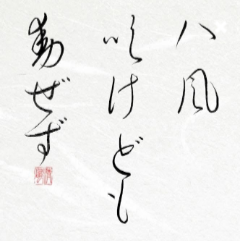 八風
吹けども
動ぜず